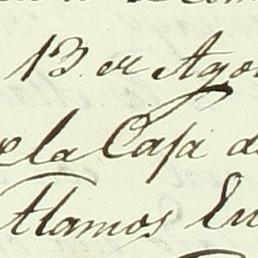 13. de Ago
de la Casa d
Alamos En